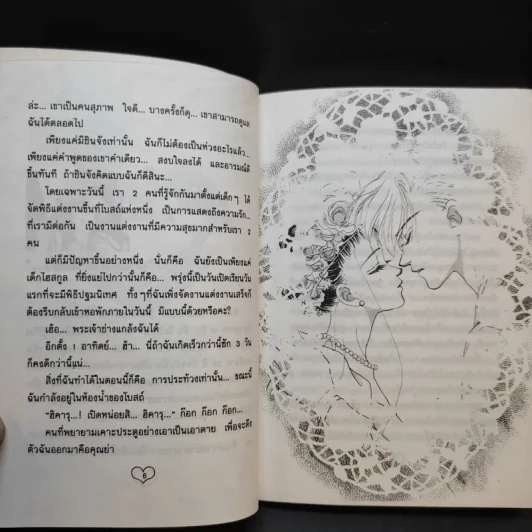 ล่ะ... เขาเป็นคนสุภาพ ใจดี... บางครั้งก็ดุ... เขาสามารถดูแล
ฉันได้ตลอดไป
เพียงแค่มีชินจังเท่านั้น ฉันก็ไม่ต้องเป็นห่วงอะไรแล้ว...
เพียงแค่คำพูดของเขาคำเดียว... สงบใจลงได้ และอารมณ์ดี
ขึ้นทันที ถ้าชินจังคิดแบบฉันก็ดีสินะ...
โดยเฉพาะวันนี้ เรา 2 คนที่รู้จักกันมาตั้งแต่เด็กๆ ได้
จัดพิธีแต่งงานขึ้นที่โบสถ์แห่งหนึ่ง เป็นการแสดงถึงความรัก...
ที่เรามีต่อกัน เป็นงานแต่งงานที่มีความสุขมากสำหรับเรา 2
คน
แต่ก็มีปัญหาขึ้นอย่างหนึ่ง นั่นก็คือ ฉันยังเป็นเพียงแค่
เด็กไฮสกูล ที่ยิ่งแย่ไปกว่านั้นก็คือ... พรุ่งนี้เป็นวันเปิดเรียนวัน
แรกที่จะมีพิธีปฐมนิเทศ ทั้งๆที่ฉันเพิ่งจัดงานแต่งงานเสร็จก็
ต้องรีบกลับเข้าหอพักภายในวันนี้ มีแบบนี้ด้วยหรือคะ?
เฮ้อ... พระเจ้าช่างแกล้งฉันได้
อีกตั้ง 1 อาทิตย์... ฮ้า... นี่ถ้าฉันเกิดเร็วกว่านี้อีก 3 วัน
ก็คงดีกว่านี้แน่...
สิ่งที่ฉันทำได้ในตอนนี้ก็คือ การประท้วงเท่านั้น... ขณะนี้
ฉันกำลังอยู่ในห้องน้ำของโบสถ์
"ฮิคารุ...! เปิดหน่อยสิ... ฮิคารุ..." ก๊อก ก๊อก ก๊อก...
คนที่พยายามเคาะประตูอย่างเอาเป็นเอาตาย เพื่อจะดึง
ตัวฉันออกมาคือคุณย่า
6